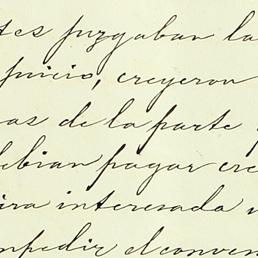 tes juzgaban la
juicio, creyeron
as de la parte
debian pagar cre
ira interesada
mpedir el conven